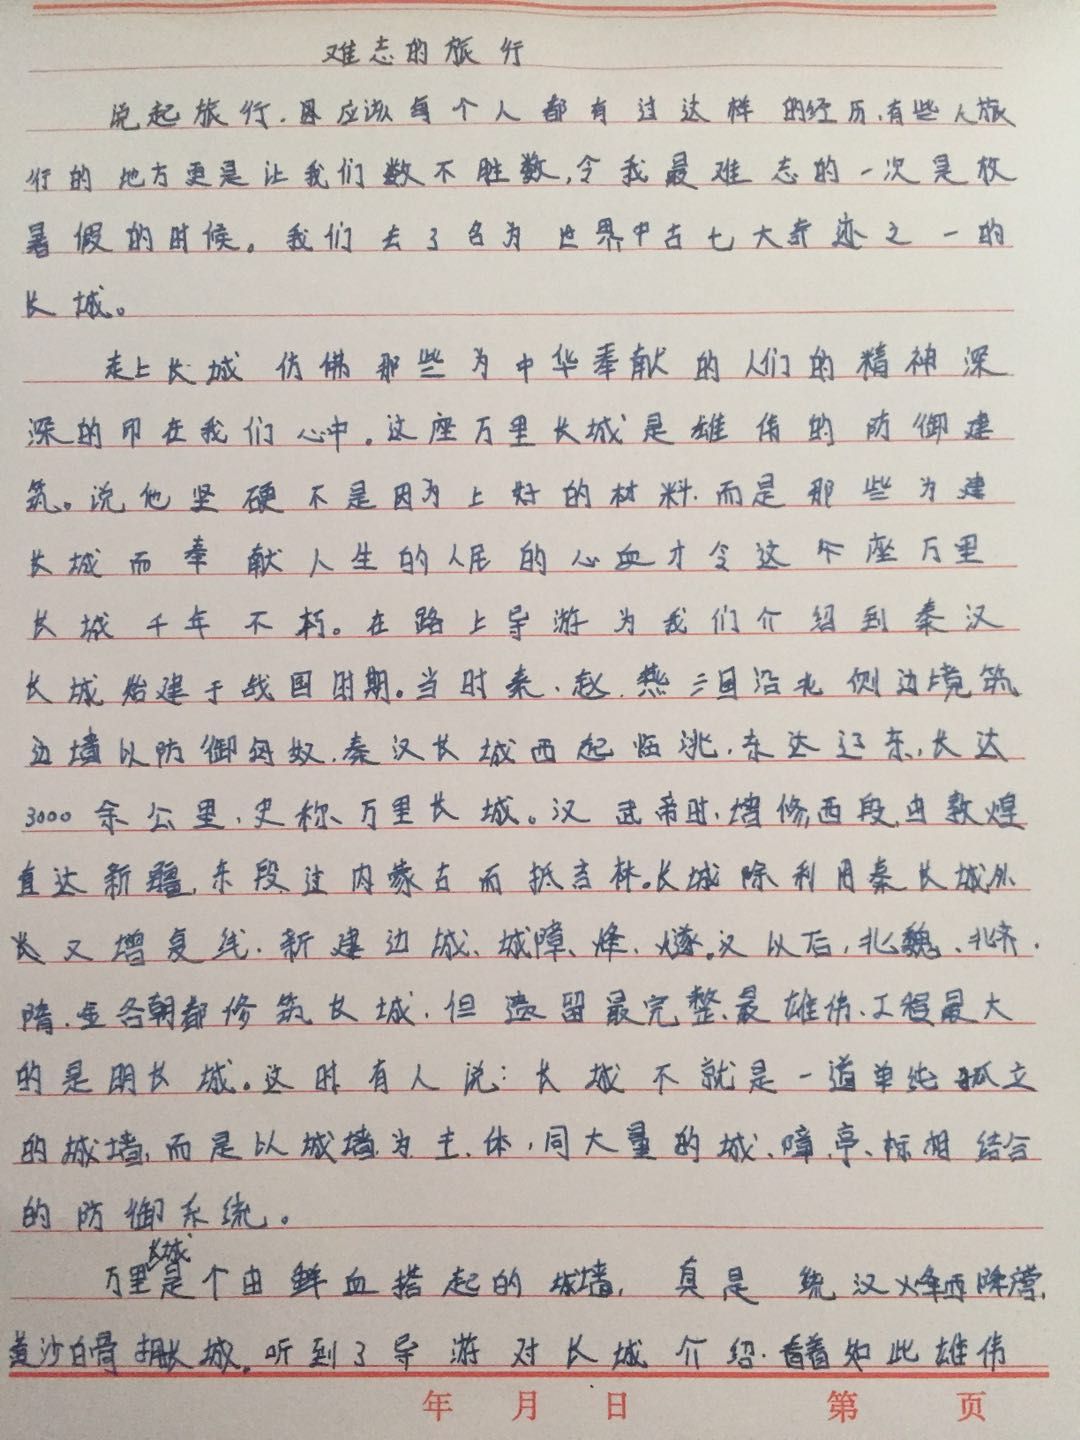 难志的旅行
说起旅行，因应该每个人都有过这样的经历，有些人旅
行的地方更是让我们数不胜数，令我最难志的一次是枚
暑假的时候。我们去了名为世界中古七大奇迹之一的
长城。
走上长城仿佛那些为中华奉献的人们的精神深
深的印在我们心中。这座万里长城是雄伟的防御建
筑。说他坚硬不是因为上好的材料，而是那些为建
长城而奉献人生的人民的心血才令这个座万里
长城千年不朽。在路上导游为我们介绍到秦汉
长城始建于战国时期。当时秦、赵、燕三国沿北侧边境筑
边墙以防御匈奴，秦汉长城西起临洮，东达辽东，长达
3000余公里，史称万里长城。汉武帝时，增修西段由敦煌
直达新疆，东段过内蒙古而抵吉林。长城除利用秦长城外
长又增复线，新建边城、城障、烽、燧。汉以后，北魏、北齐、
隋、金各朝都修筑长城，但遗留最完整、最雄伟、工程最大
的是明长城。这时有人说：长城不就是一道单纯孤立
的城墙，而是以城墙为主体，同大量的城、障、亭、标相结合
的防御系统。
万里长城是个由鲜血搭起的城墙，真是统汉烽西降营，
黄沙白骨拥长城。听到了导游对长城介绍，看着如此雄伟
年 月 日 第 页